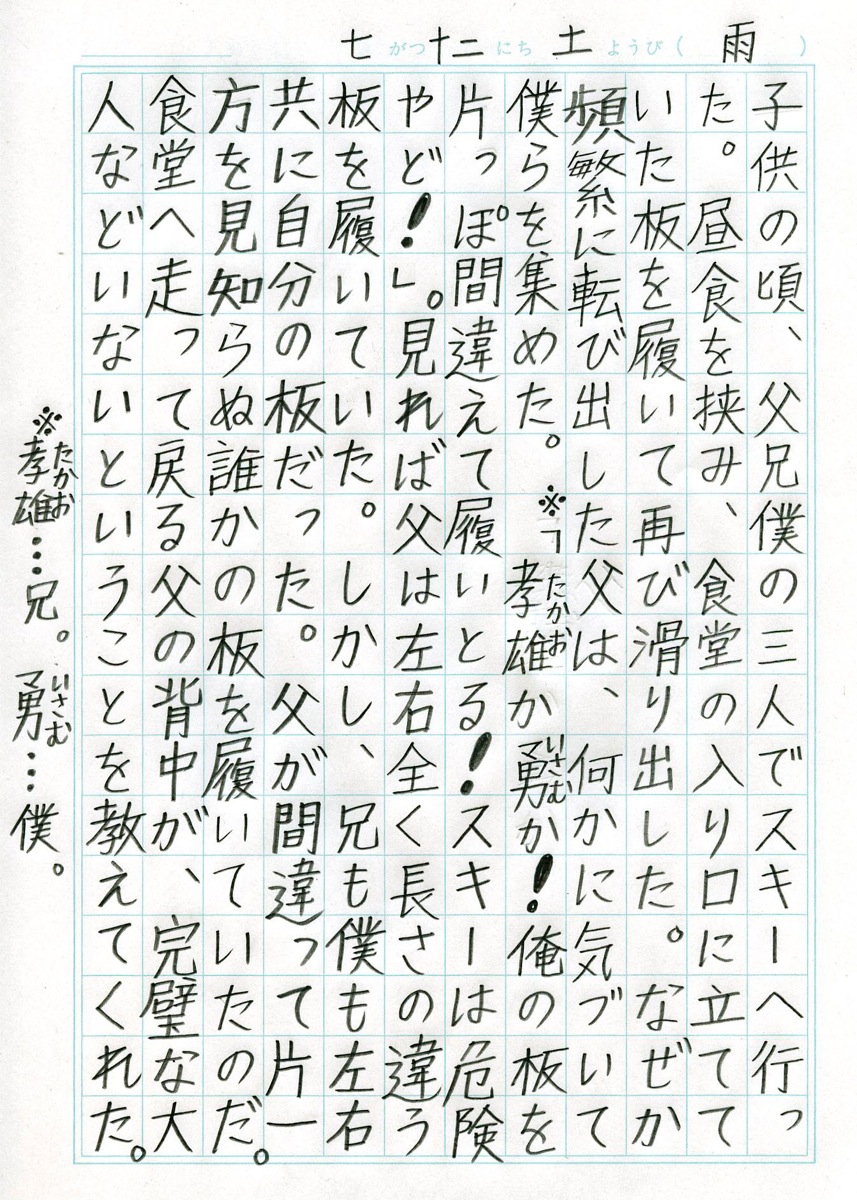 七がつ十二にち土ようび(雨)
子供の頃、父兄僕の三人でスキーへ行っ
た。昼食を挟み、食堂の入り口に立てて
いた板を履いて再び滑り出した。なぜか
頻繁に転び出した父は、何かに気づいて
僕らを集めた。※「孝雄か勇か!俺の板を
たかお
いさむ
片っぽ間違えて履いとる!スキーは危険
やど!」。見れば父は左右全く長さの違う
板を履いていた。しかし、兄も僕も左右
共に自分の板だった。父が間違って片一
方を見知らぬ誰かの板を履いていたのだ。
食堂へ走って戻る父の背中が、完璧な大
人などいないということを教えてくれた。
※孝雄…兄。勇…僕。
たかお
いさむ